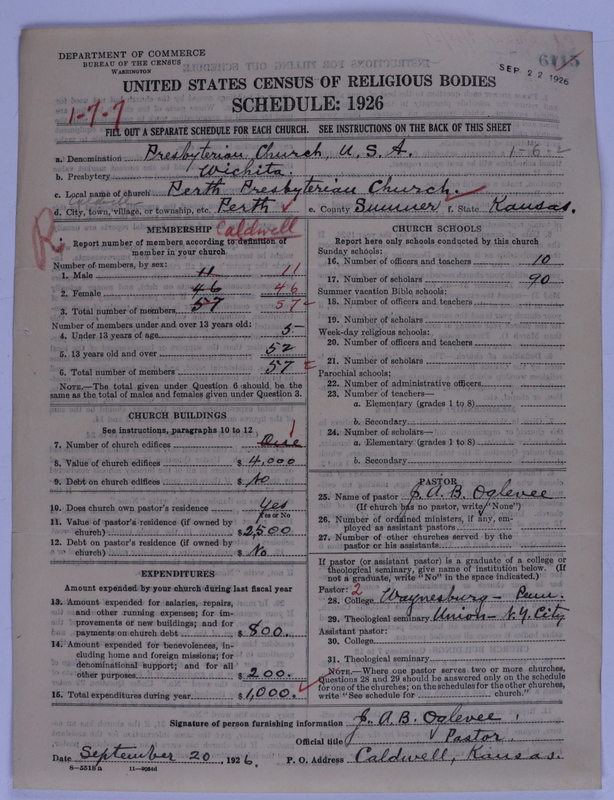 DEPARTMENT OF COMMERCE
BUREAU OF THE CENSUS
WASHINGTON
6115
SEP 22 1926
UNITED STATES CENSUS OF RELIGIOUS BODIES
SCHEDULE: 1926
1-7-7
FILL OUT A SEPARATE SCHEDULE FOR EACH CHURCH. SEE INSTRUCTIONS ON THE BACK OF THIS SHEET
a. Denomination Presbyterian Church, U.S.A.
b. Presbytery Wichita.
c. Local name of church Perth Presbyterian Church.
Caldwell
d. City, town, village, or township, etc. Perth e. County Sumner f. State Kansas.
R
MEMBERSHIP Caldwell
Report number of members according to definition of member in your church
Number of members, by sex:
1. Male 11 11
2. Female 46 46
3. Total number of members 57 57
Number of members under and over 13 years old:
4. Under 13 years of age 5
5. 13 years old and over 52
6. Total number of members 57
NOTE.—The total given under Question 6 should be the same as the total of males and females given under Question 3.
CHURCH BUILDINGS
See instructions, paragraphs 10 to 12
7. Number of church edifices One 1
8. Value of church edifices $ 4,000
9. Debt on church edifices $ No
10. Does church own pastor's residence Yes
Yes or No
11. Value of pastor's residence (if owned by church) $ 2,500
12. Debt on pastor's residence (if owned by church) $ No
EXPENDITURES
Amount expended by your church during last fiscal year
13. Amount expended for salaries, repairs, and other running expenses; for improvements or new buildings; and for payments on church debt $ 800.
14. Amount expended for benevolences, including home and foreign missions; for denominational support; and for all other purposes $ 200.
15. Total expenditures during year $ 1,000.
CHURCH SCHOOLS
Report here only schools conducted by this church
Sunday schools:
16. Number of officers and teachers 10
17. Number of scholars 90
Summer vacation Bible schools:
18. Number of officers and teachers
19. Number of scholars
Week-day religious schools:
20. Number of officers and teachers
21. Number of scholars
Parochial schools:
22. Number of administrative officers
23. Number of teachers—
a. Elementary (grades 1 to 8)
b. Secondary
24. Number of scholars—
a. Elementary (grades 1 to 8)
b. Secondary
PASTOR
25. Name of pastor J. A. B. Oglevee
(If church has no pastor, write "None")
26. Number of ordained ministers, if any, employed as assistant pastors
27. Number of other churches served by the pastor or his assistants
If pastor (or assistant pastor) is a graduate of a college or theological seminary, give name of institution below. (If not a graduate, write "No" in the space indicated.)
Pastor: 2
28. College Waynesburg - Penn.
29. Theological seminary Union - N.Y. City
Assistant pastor:
30. College
31. Theological seminary
NOTE.—Where one pastor serves two or more churches, Questions 28 and 29 should be answered only on the schedule for one of the churches; on the schedules for the other churches, write "See schedule for church."
Signature of person furnishing information J. A. B. Oglevee
Official title Pastor
Date September 20, 1926. P. O. Address Caldwell, Kansas.